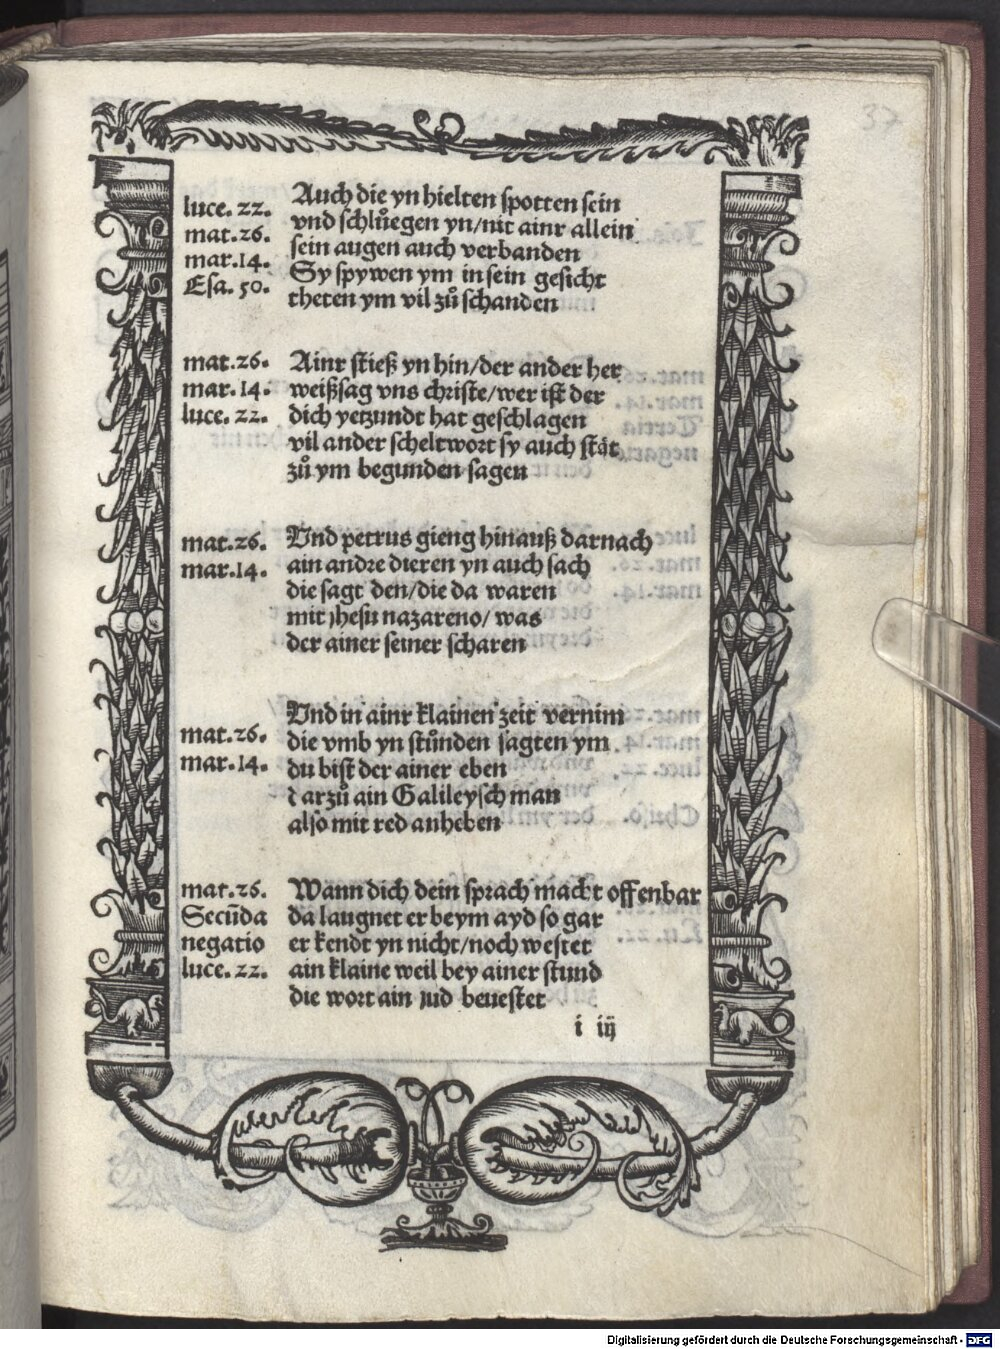 37
luce. 22.
mat. 26.
mar. 14.
Esa. 50.
Auch die yn hielten spotten sein
vnd schluͦegen yn/nit ainr allein
sein augen auch verbanden
Sy spywen ym in sein gesicht
theten ym vil zuͦ schanden
mat. 26.
mar. 14.
luce. 22.
Ainr stieß yn hin/der ander her
weißsag vns christe/wer ist der
dich yetzundt hat geschlagen
vil ander scheltwort sy auch stät
zuͦ ym begunden sagen
mat. 26.
mar. 14.
Vnd petrus gieng hinauß darnach
ain andre dieren yn auch sach
die sagt den/die da waren
mit jhesu nazareno/was
der ainer seiner scharen
mat. 26.
mar. 14.
Vnd in ainr klainen zeit vernim
die vmb yn stuͦnden sagten ym
du bist der ainer eben
darzuͦ ain Galileysch man
also mit red anheben
mat. 26.
Secūda
negatio
luce. 22.
Wann dich dein sprach macht offenbar
da laugnet er beym ayd so gar
er kendt yn nicht/noch westet
ain klaine weil bey ainer stund
die wort ain jud beuestet
i iij
Digitalisierung gefördert durch die Deutsche Forschungsgemeinschaft - DFG